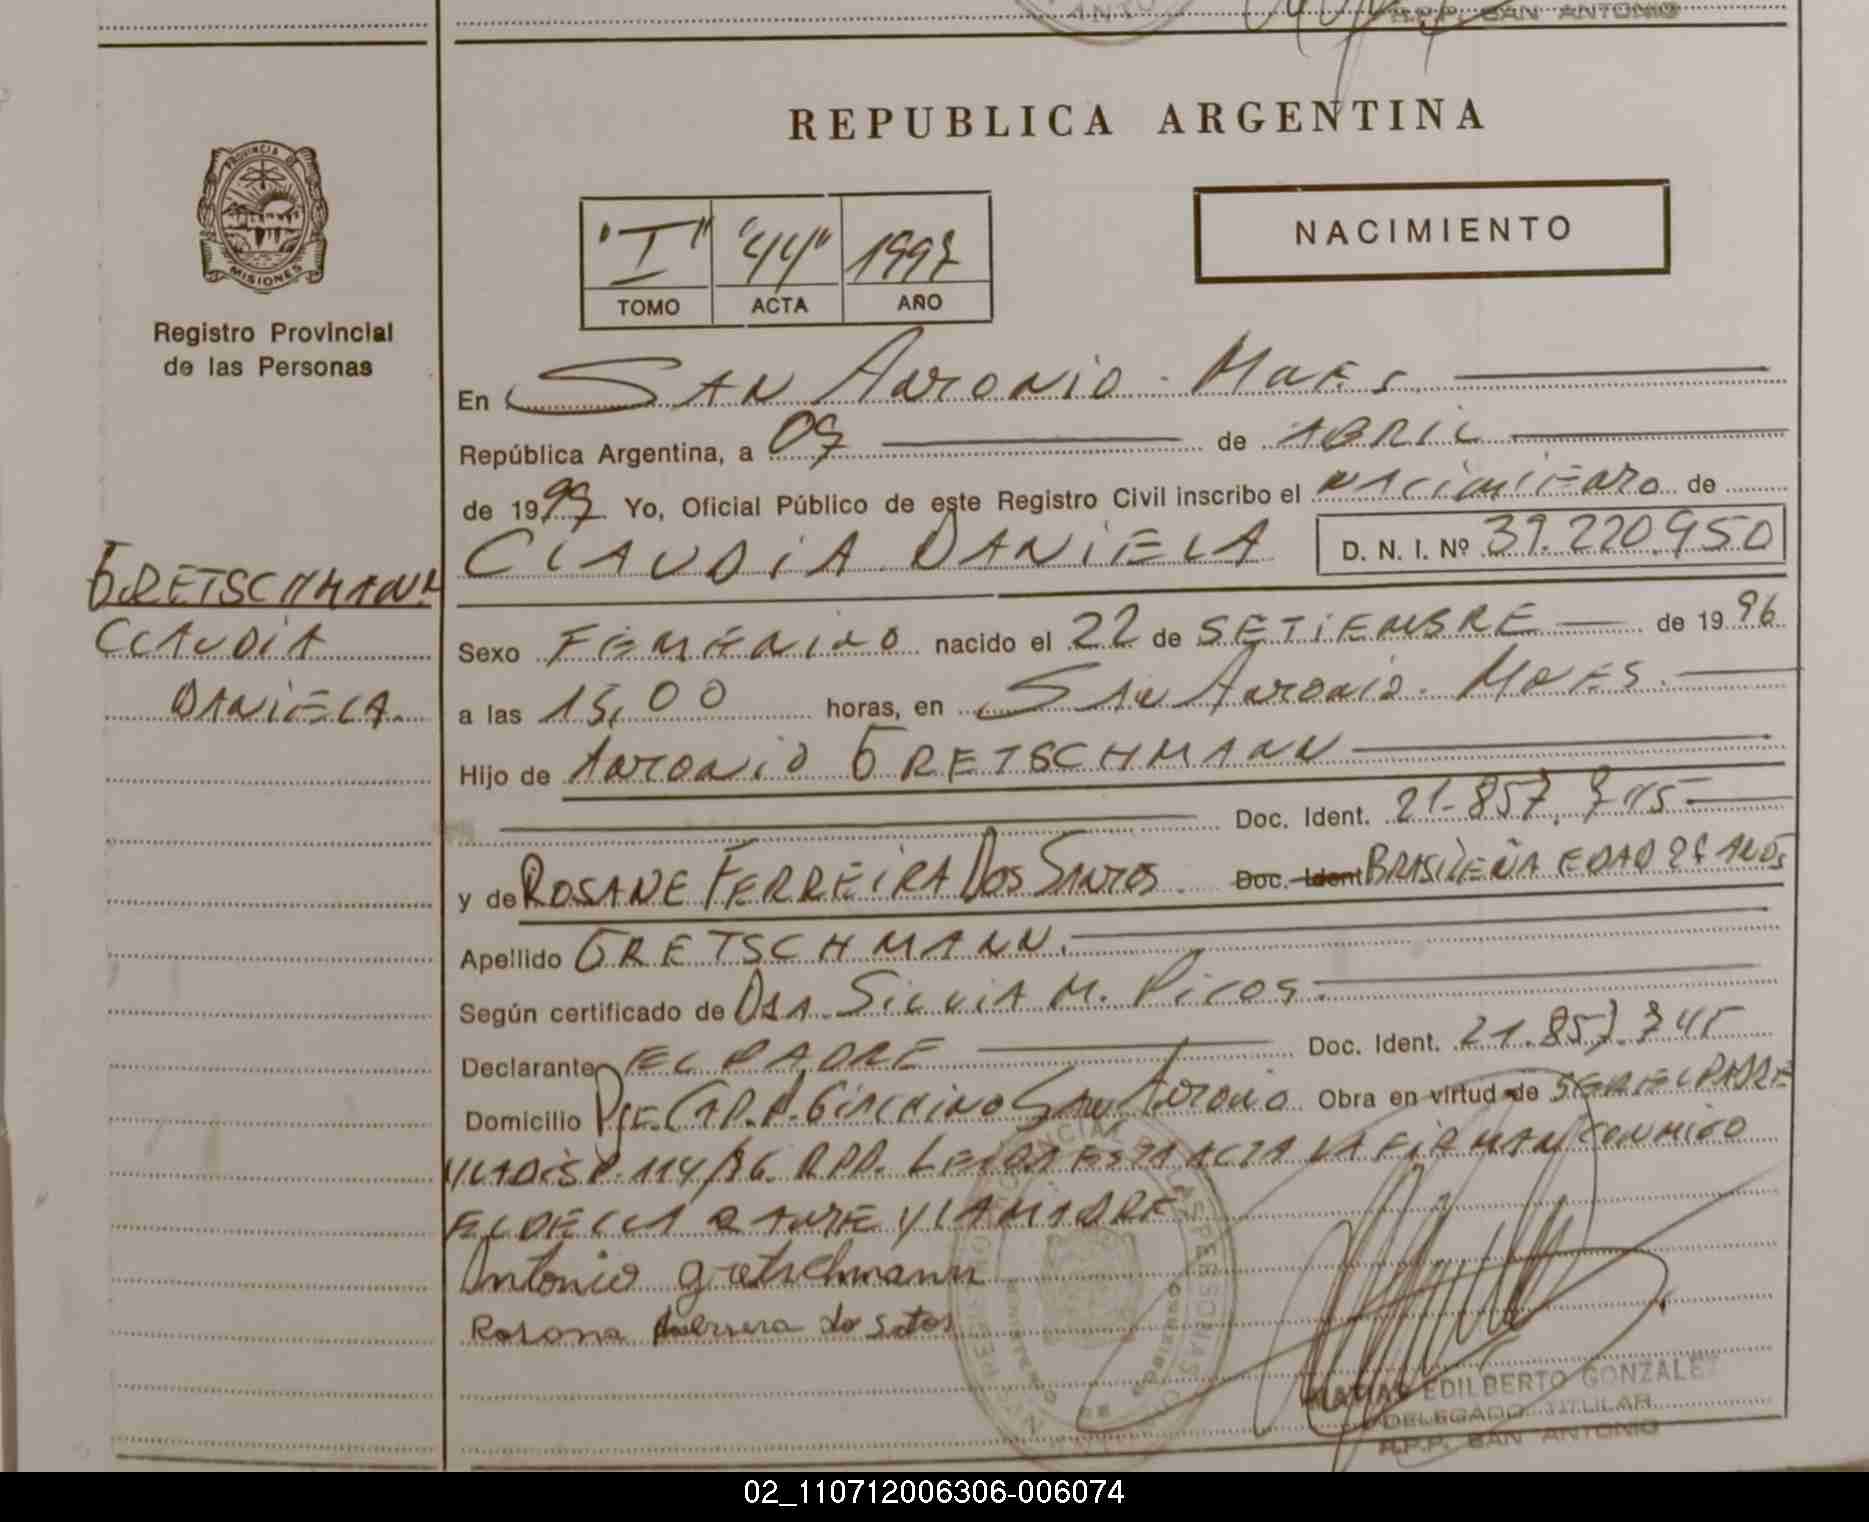 ANTO
R.P.P. SAN ANTONIO
REPUBLICA ARGENTINA
PROVINCIA DE
MISIONES
Registro Provincial
de las Personas
"I" "44" 1997
TOMO ACTA AÑO
NACIMIENTO
En SAN ANTONIO - Mnes
República Argentina, a 07 de ABRIL
de 1997 Yo, Oficial Público de este Registro Civil inscribo el NACIMIENTO de
CLAUDIA DANIELA D. N. I. Nº 39.220.950
GRETSCHMANN
CLAUDIA
DANIELA.
Sexo FEMENINO nacido el 22 de SETIEMBRE de 1996
a las 15,00 horas, en SAN ANTONIO - MnES.
Hijo de ANTONIO GRETSCHMANN
Doc. Ident. 21.857.745
y de ROSANE FERREIRA DOS SANTOS Doc. Ident BRASILEÑA EDAD AÑOS
Apellido GRETSCHMANN.
Según certificado de DRA. SILVIA M. PICOS.
Declarante EL PADRE Doc. Ident. 21.857.745
Domicilio PJE. CAP. A. GIACHINO SAN ANTONIO Obra en virtud de SER EL PADRE
Y LA DISP. 114/96. RPP. LEIDA ESTA ACTA LA FIRMAN CONMIGO
EL DECLARANTE Y LA MADRE
Antonio gretschmann
Rosana ferrera do Satos
EDILBERTO GONZALEZ
DELEGADO TITULAR
R.P.P. SAN ANTONIO
02_110712006306-006074